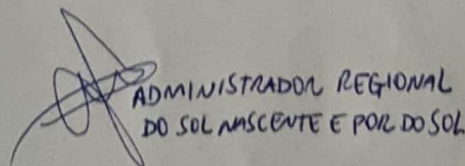 ADMINISTRADOR REGIONAL
DO SOL NASCENTE E POR DO SOL